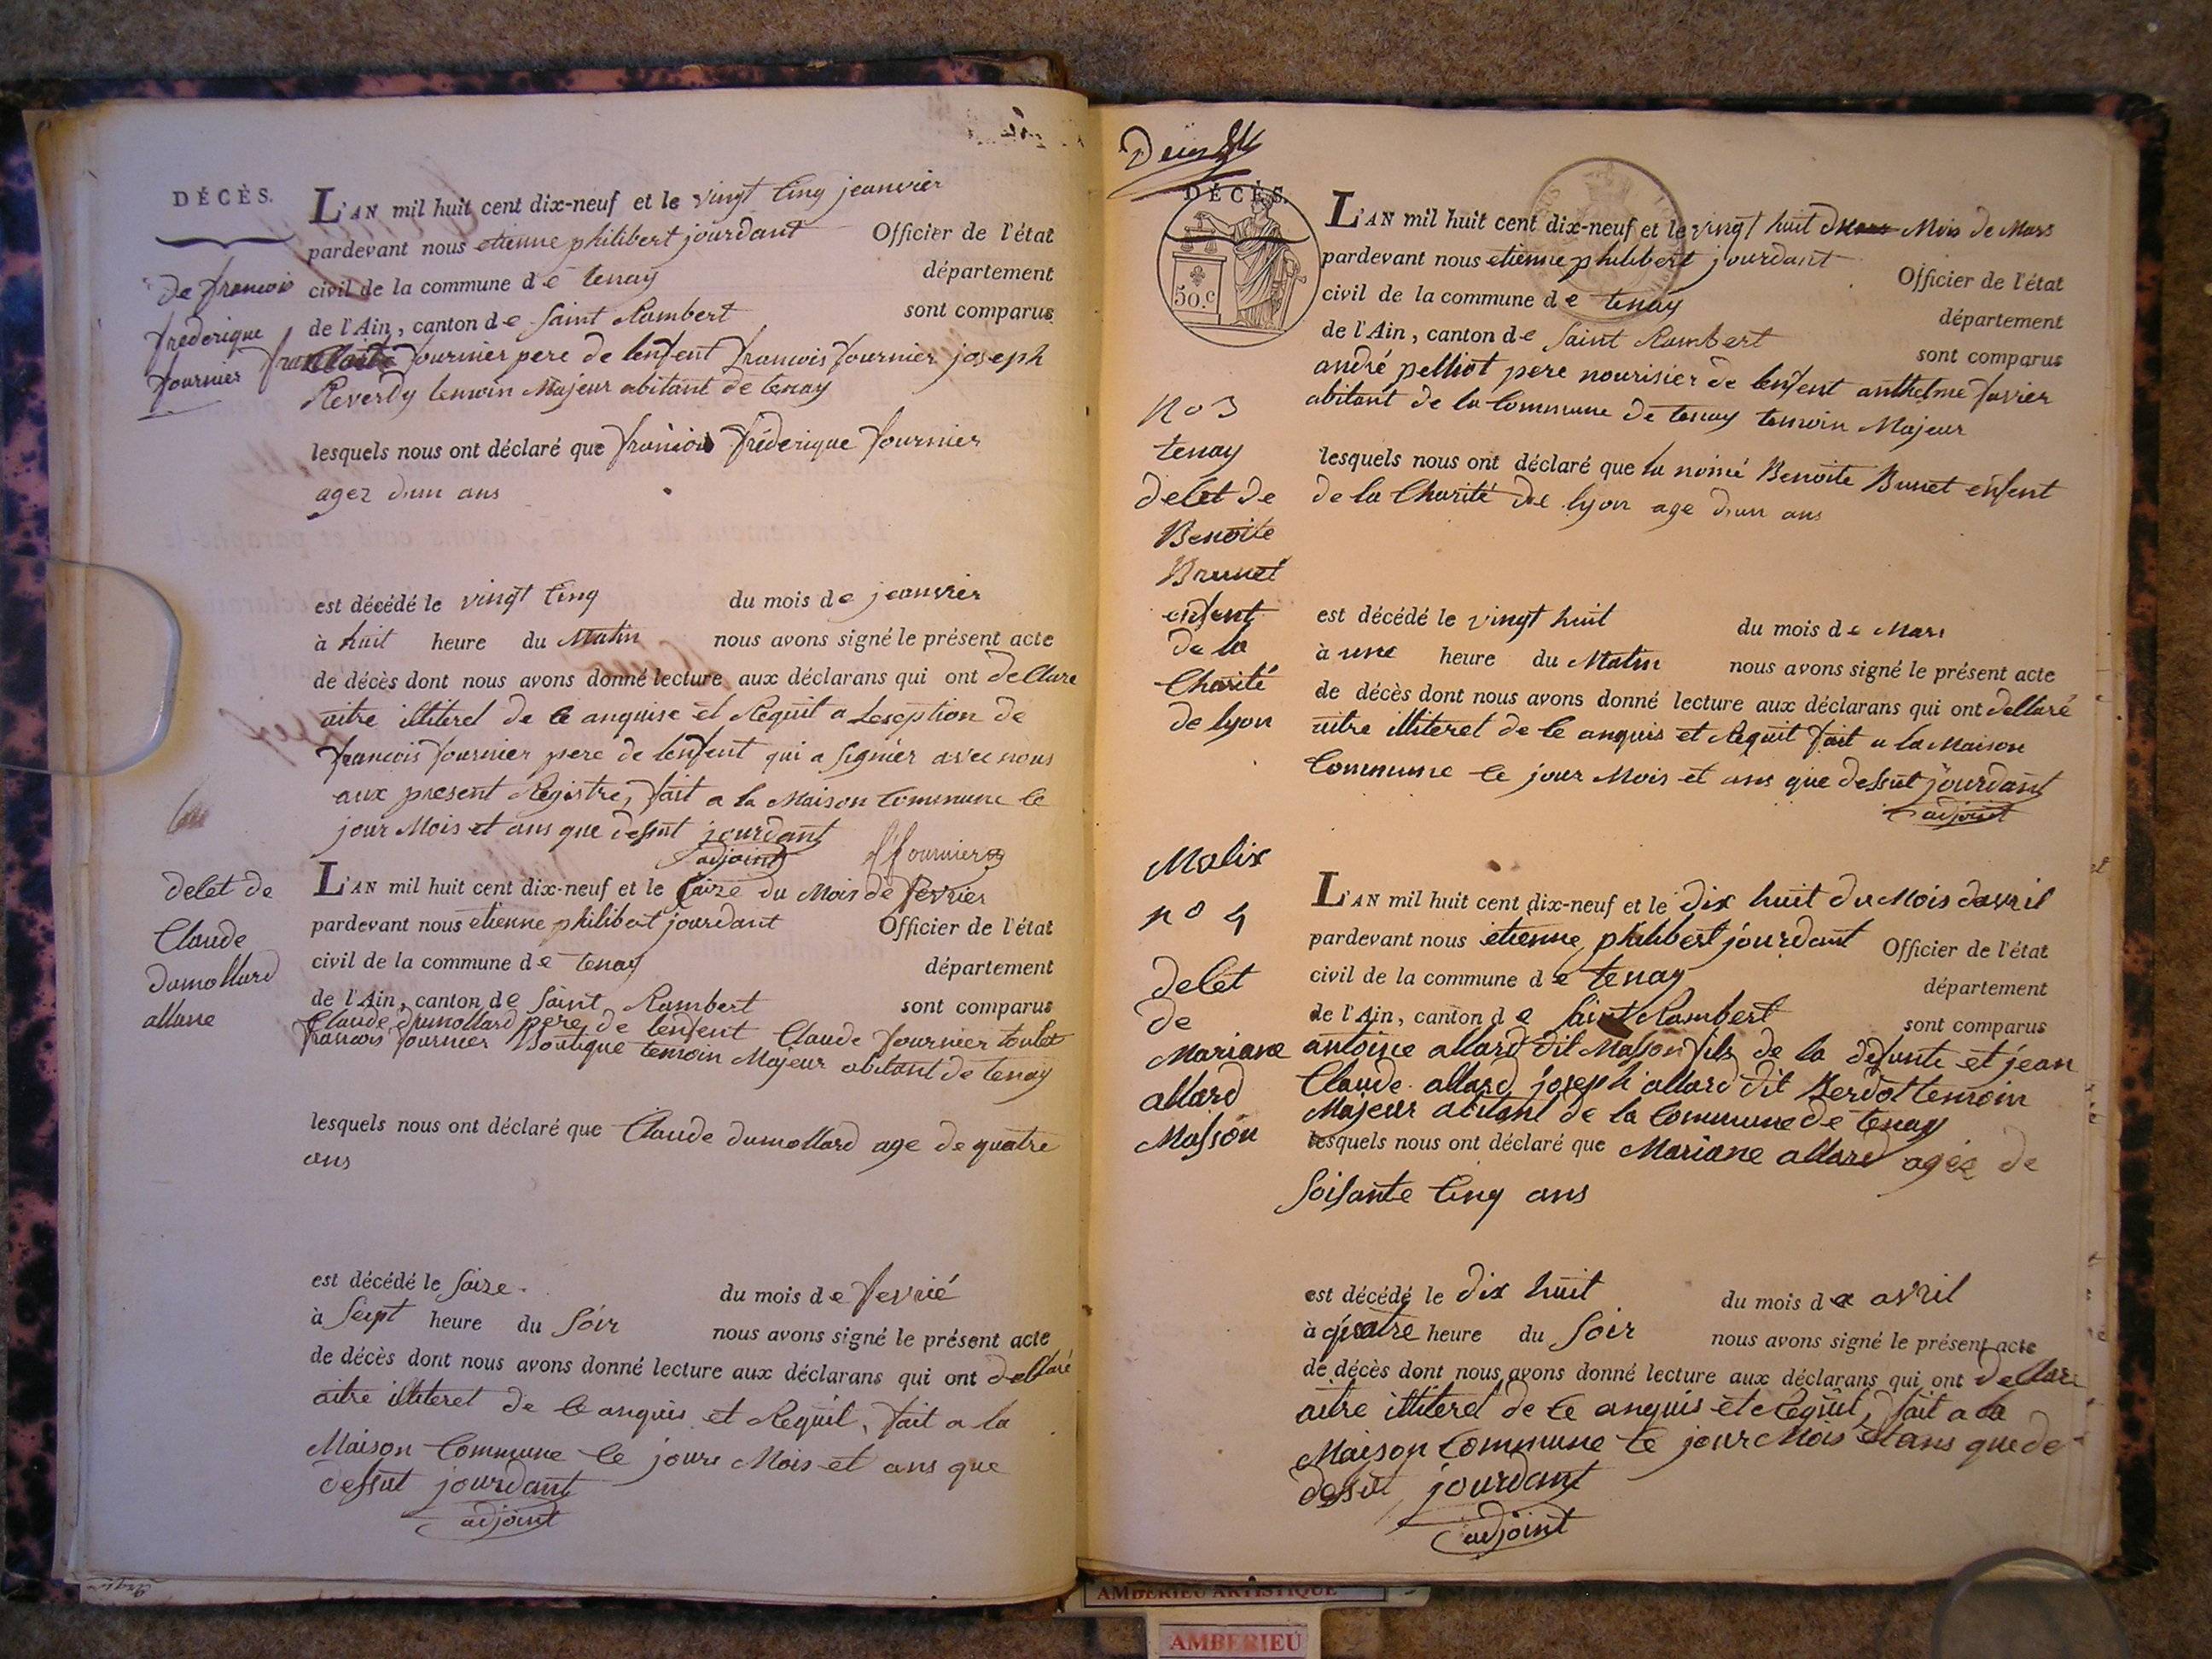 DÉCÈS.
de francois
frederique
fournier
L'AN mil huit cent dix-neuf et le vingt Cinq jeanvier
pardevant nous etienne philibert jourdant Officier de l'état
civil de la commune de tenay département
de l'Ain, canton de Saint Rambert sont comparus
fournier pere de lenfent francois fournier joseph
Reverdy temoin Majeur abitant de tenay
lesquels nous ont déclaré que francois fréderique fournier
agez dun ans
est décédé le vingt Cinq du mois de jeanvier
à huit heure du Matin nous avons signé le présent acte
de décès dont nous avons donné lecture aux déclarans qui ont dellare
aitre illiteret de Ce anquise et Requit a Lesception de
francois fournier pere de lenfent qui a Signier avec nous
aux present Registre, fait a la Maison Commune Ce
jour Mois et ans que dessut jourdant
adjoint ffournier
delet de
Claude
dumollard
allane
L'AN mil huit cent dix-neuf et le Saize du Mois de fevrier
pardevant nous etienne philibert jourdant Officier de l'état
civil de la commune de tenay département
de l'Ain, canton de Saint Rambert sont comparus
Claude dumollard pere de lenfent Claude fournier toulet
francois fournier Boutique temoin Majeur abitant de tenay
lesquels nous ont déclaré que Claude dumollard age de quatre
ans
est décédé le Saize. du mois de fevrié
à Seipt heure du Soir nous avons signé le présent acte
de décès dont nous avons donné lecture aux déclarans qui ont dellaré
aitre illiteret de Ce anquis et Requit, fait a la
Maison Commune Ce jours Mois et ans que
dessut jourdant
adjoint
DÉCÈS.
50.c
no 3
tenay
delet de
Benoite
Brunet
enfent
de la
Charité
de lyon
L'AN mil huit cent dix-neuf et le vingt huit Mois de Mars
pardevant nous etienne philibert jourdant Officier de l'état
civil de la commune de tenay département
de l'Ain, canton de Saint Rambert sont comparus
andré pelliot pere nourisier de lenfent anthelme favier
abitant de la Commune de tenay temoin Majeur
lesquels nous ont déclaré que la nomé Benoite Bunet enfent
de la Charité de lyon age dun ans
est décédé le vingt huit du mois de Mars
à une heure du Matin nous avons signé le présent acte
de décès dont nous avons donné lecture aux déclarans qui ont dellaré
aitre illiteret de Ce anquis et Requit fait a la Maison
Commune Ce jour Mois et ans que dessut jourdant
adjoint
Malix
no 4
delet
de
Mariane
allard
Masson
L'AN mil huit cent dix-neuf et le dix huit du Mois davril
pardevant nous etienne philibert jourdant Officier de l'état
civil de la commune de tenay département
de l'Ain, canton de Saint Rambert sont comparus
antoine allard dit Masson fils de la defunte et jean
Claude allard joseph allard dit Berdot temoin
Majeur abitant de la Commune de tenay
lesquels nous ont déclaré que Mariane allard agée de
Soisante Cinq ans
est décédé le dix huit du mois de avril
à quatre heure du Soir nous avons signé le présent acte
de décès dont nous avons donné lecture aux déclarans qui ont dellare
aitre illiteret de Ce anquis et Requit, fait a la
Maison Commune Ce jour Mois et ans que de
dessut jourdant
adjoint
AMBERIEU ARTISTIQUE
AMBERIEU